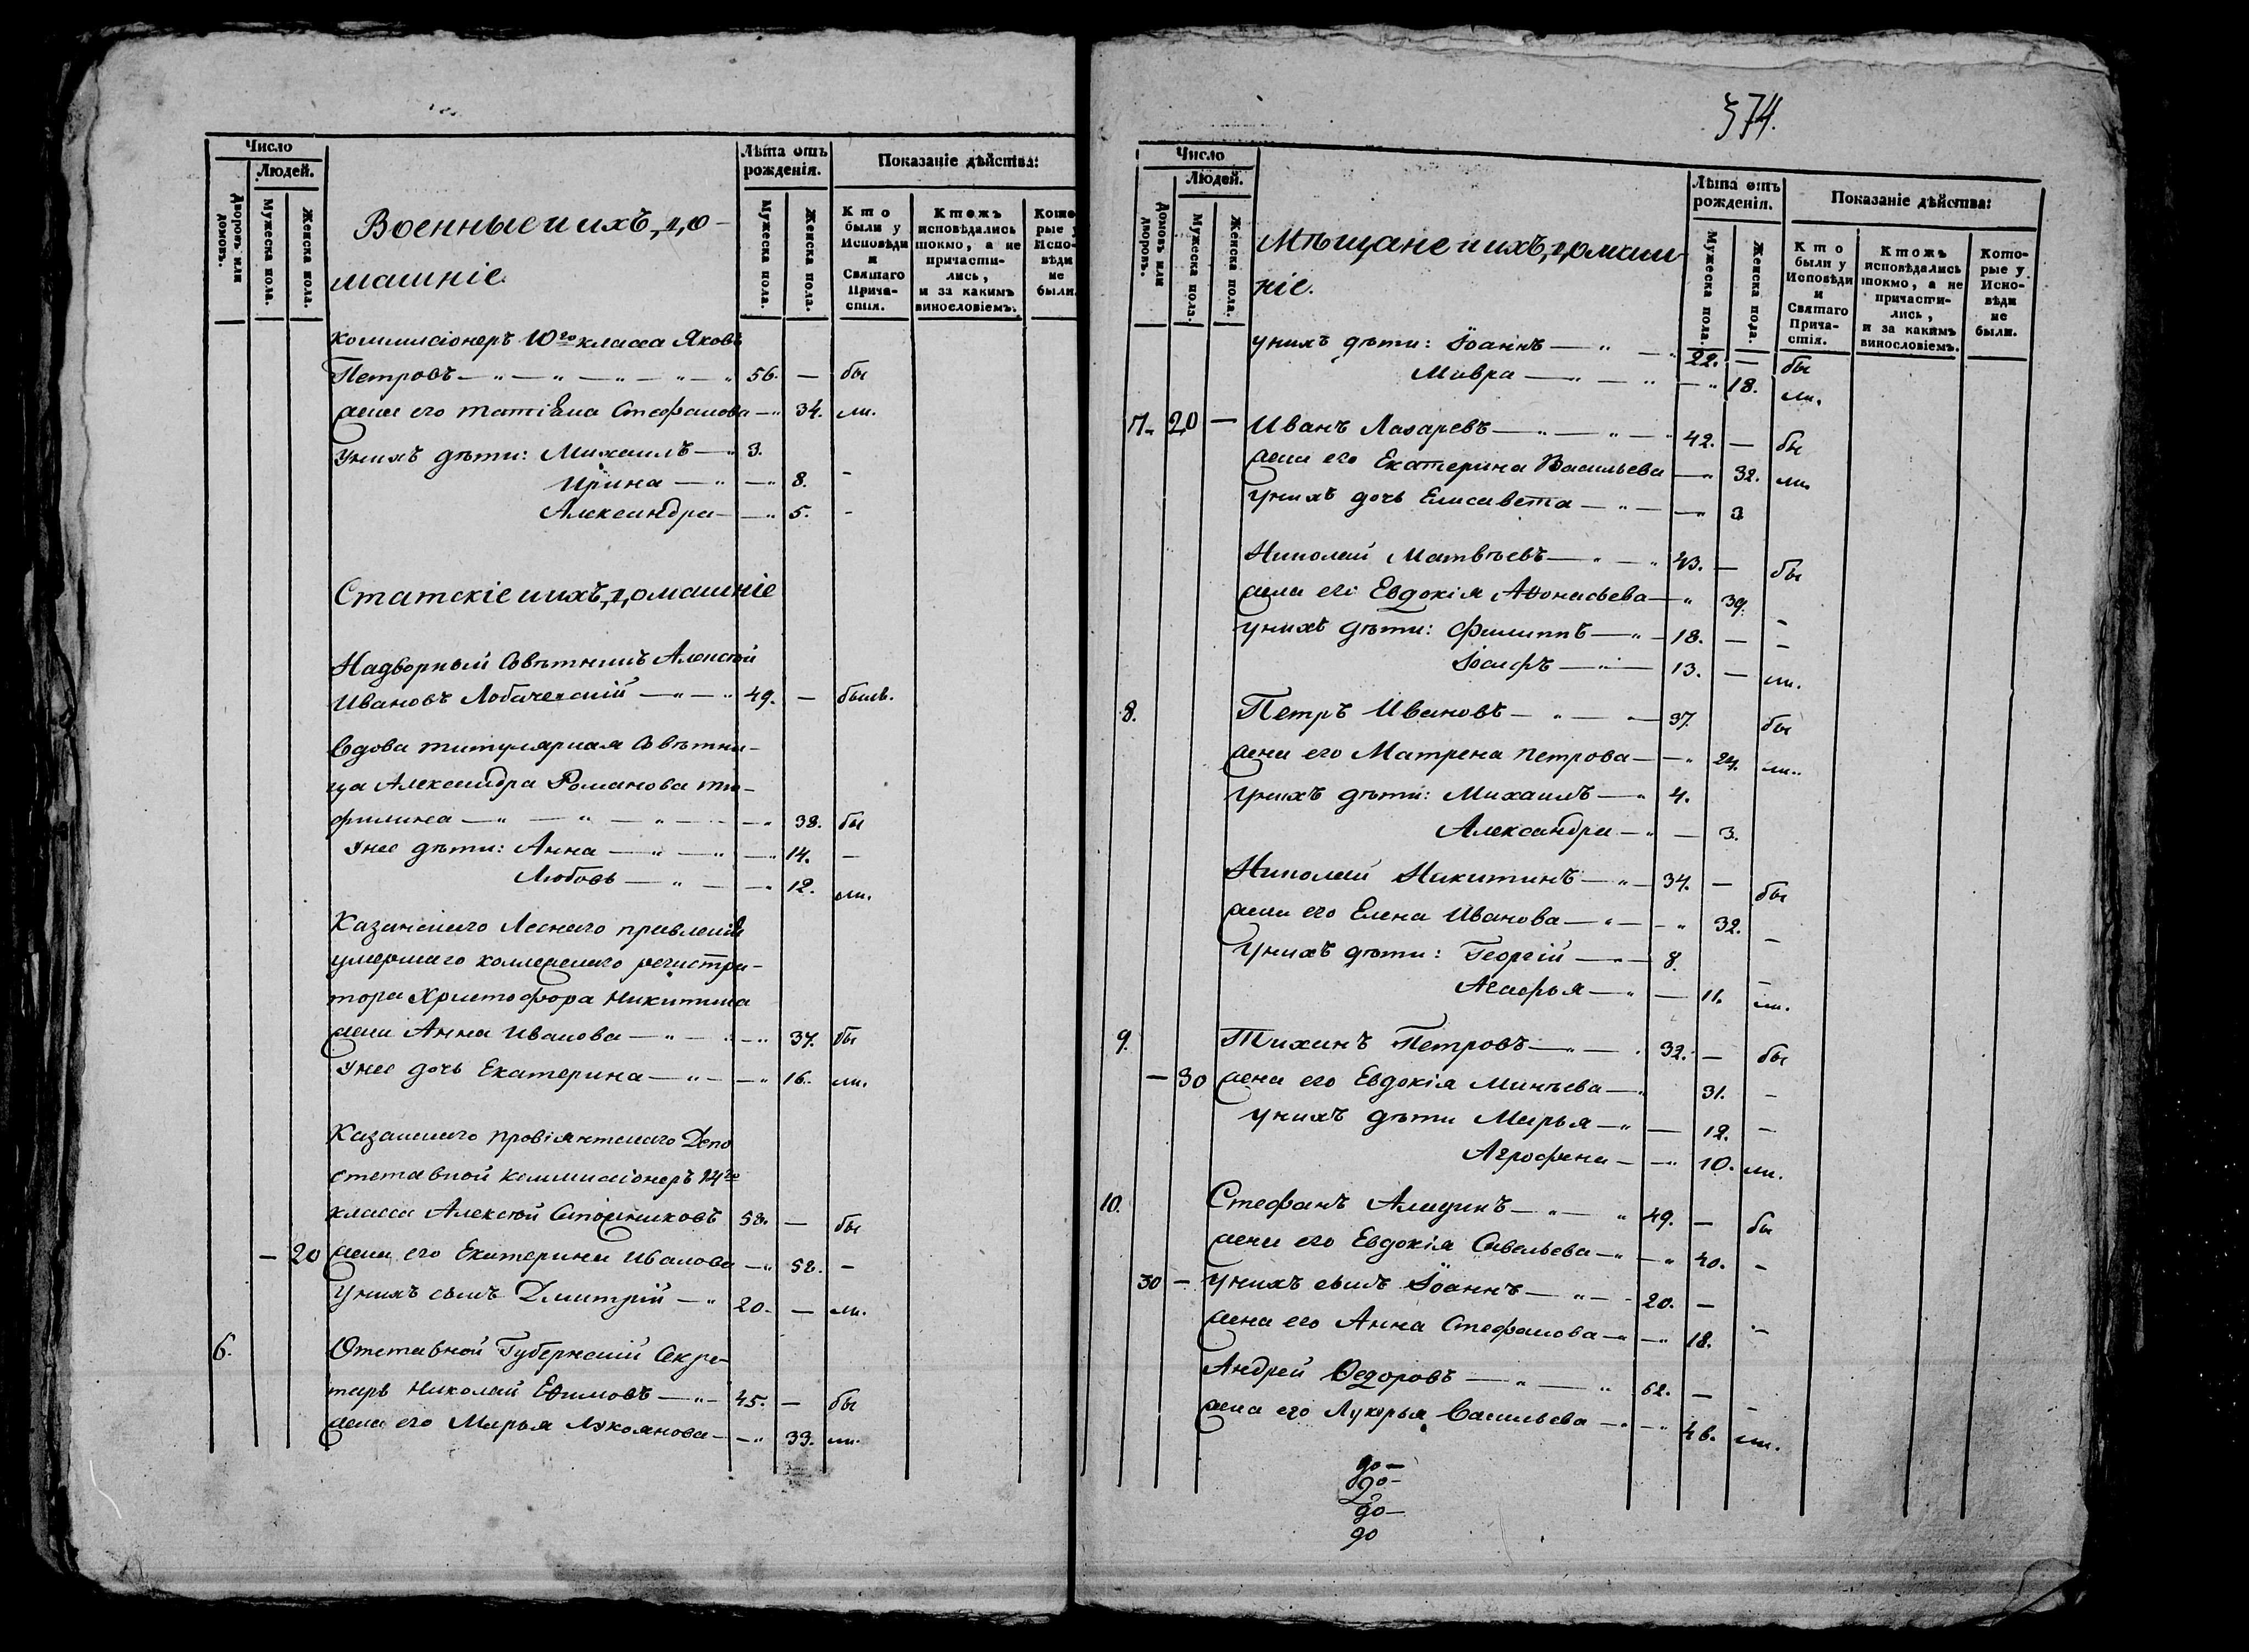 Число
Людей.
Дворовъ или домовъ.
Мужеска пола.
Женска пола.
Военные и ихъ до-
машніе.
Лѣта отъ рожденія.
Мужеска пола.
Женска пола.
Показаніе дѣйства:
Кто были у Исповѣди и Святаго Прича- стія.
Ктожъ исповѣдались токмо, а не причасти- лись, и за какимъ винословіемъ.
Кото- рые у Испо- вѣди не были.
Коммисіонеръ 10го класса Яковъ
Петровъ — 56. — бы
жена его Татіяна Стефанова — 34. ли.
У нихъ дѣти: Михаилъ — 3.
Ирина — 8. -
Александра — 5. -
Статскіе и ихъ домашніе
Надворный Совѣтникъ Алексѣй
Ивановъ Лобачевскій — 49. — былъ.
Вдова титулярная Совѣтни-
ца Александра Романова
38. бы
У нее дѣти: Анна — 14. —
Любовь — 12. ли.
Казанскаго Леснаго правленія
умершаго коллежскаго регистра-
тора Христофора Никитина
жена Анна Иванова — 37. бы
У нее дочь Екатерина — 16. ли.
Казанскаго провіянтскаго Депо
отставной коммисіонеръ 14го
класса Алексѣй 58. — бы
— 20 жена его Екатерина Иванова — 52. -
У нихъ сынъ Дмитрій — 20. — ли.
6. Отставной Губернскій Секре-
тарь Николай Еѳимовъ — 45. — бы
жена его Марья Лукоянова — 33. ли.
374.
Число
Людей.
Домовъ или дворовъ.
Мужеска пола.
Женска пола.
Мѣщане и ихъ домаш-
ніе.
Лѣта отъ рожденія.
Мужеска пола.
Женска пола.
Показаніе дѣйства:
Кто были у Исповѣди и Святаго Прича- стія.
Ктожъ исповѣдались токмо, а не причасти- лись, и за какимъ винословіемъ.
Кото- рые у Испо- вѣди не были.
у нихъ дѣти: Іоаннъ — 22. — бы
Мавра — 18. ли.
7. 20 — Иванъ Лазаревъ — 42. — бы
жена его Екатерина Васильева — 32. ли.
у нихъ дочь Елисавета — 3
Николай Матвѣевъ — 43. — бы
жена его Евдокія Аѳонасьева — 39. -
у нихъ дѣти: Филиппъ — 18. — -
Іосифъ — 13. — ли.
8. Петръ Ивановъ — 37. бы
жена его Матрена Петрова — 24. ли.
у нихъ дѣти: Михаилъ — 4.
Александра — 3.
Николай Никитинъ — 34. — бы
жена его Елена Иванова — 32. -
у нихъ дѣти: Георгій — 8. -
Агафья — 11. ли.
9. Тихинъ Петровъ — 32. — бы
— 30 жена его Евдокія Минѣева — 31. -
у нихъ дѣти Марья — 12. -
Агрофена — 10. ли.
10. Стефанъ — 49. — бы
жена его Евдокія Савельева — 40. -
30 — у нихъ сынъ Іоаннъ — 20. —
жена его Анна Стефанова — 18. -
Андрей Ѳедоровъ — 62. — -
жена его Лукерья Васильева — 46. ли.
до —
до -
до —
до